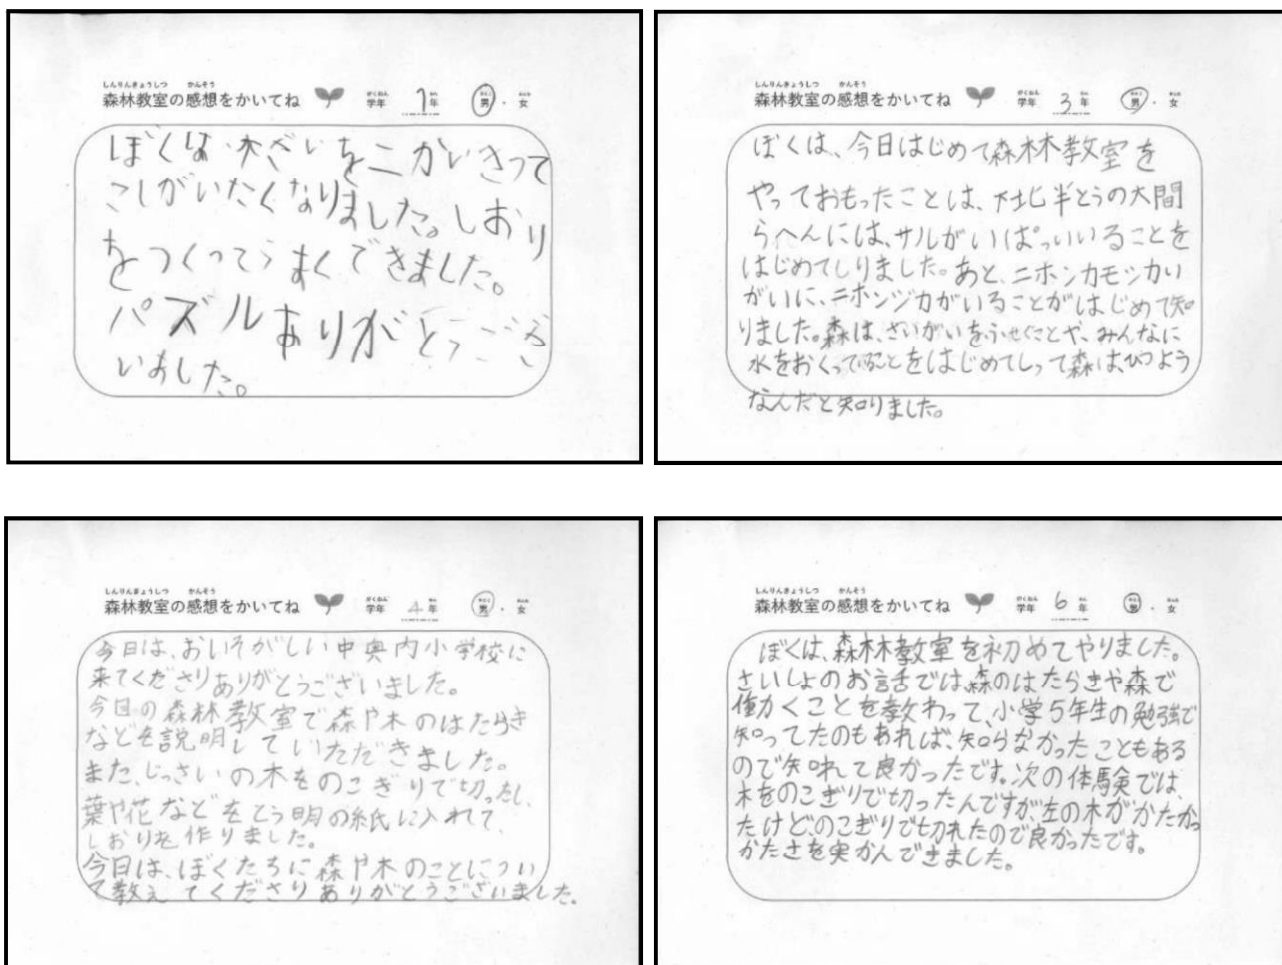 しんりんきょうしつ かんそう がくねん ねん おとこ おんな
森林教室の感想をかいてね 学年 1年 男・女
ぼくは木ざいを二かいきって
こしがいたくなりました。しおり
をつくってうまくできました。
パズルありがとうござ
いました。
しんりんきょうしつ かんそう がくねん ねん おとこ おんな
森林教室の感想をかいてね 学年 3年 男・女
ぼくは、今日はじめて森林教室を
やっておもったことは、下北半とうの大間
らへんには、サルがいぱっいいることを
はじめてしりました。あと、ニホンカモッカい
がいに、ニホンジカがいることがはじめて知
りました。森は、さいがいをふせぐことや、みんなに
水をおくっていることをはじめてしって森は、ひつよう
なんだと知りました。
しんりんきょうしつ かんそう がくねん ねん おとこ おんな
森林教室の感想をかいてね 学年 4年 男・女
今日は、おいそがしい中奥内小学校に
来てくださりありがとうございました。
今日の森林教室で森や木のはたらき
などを説明していただきました。
また、じっさいの木をのこぎりで切ったし、
葉や花などをとう明の紙に入れて、
しおりを作りました。
今日は、ぼくたちに森や木のことについ
て教えてくださりありがとうございました。
しんりんきょうしつ かんそう がくねん ねん おとこ おんな
森林教室の感想をかいてね 学年 6年 男・女
ぼくは、森林教室を初めてやりました。
さいしょのお話では、森のはたらきや森で
働かくことを教わって、小学5年生の勉強で
知ってたのもあれば、知らなかったこともある
ので知れて良かったです。次の体験では、
木をのこぎりで切ったんですが、生の木がかたかっ
たけど、のこぎりで切れたので良かったです。
かたさを実かんできました。